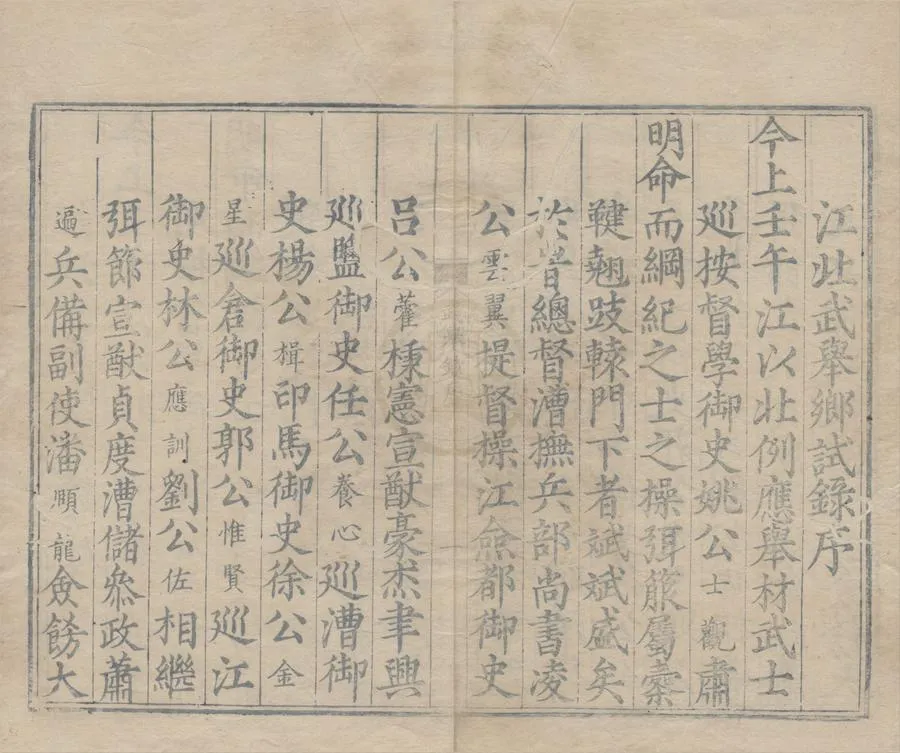 江北武舉鄉試錄序
今上壬午江以北例應舉材武士
巡按督學御史姚公士觀肅
明命而綱紀之士之操弭箙屬櫜
鞬翹跂轅門下者斌斌盛矣
於昔總督漕撫兵部尚書凌
公雲翼提督操江僉都御史
呂公藿棟憲宣猷豪杰聿興
巡鹽御史任公養心巡漕御
史楊公楫印馬御史徐公金
星巡倉御史郭公惟賢巡江
御史林公應訓劉公佐相繼
弭節宣猷貞度漕儲叅政蕭
遍兵備副使潘順龍僉飭大